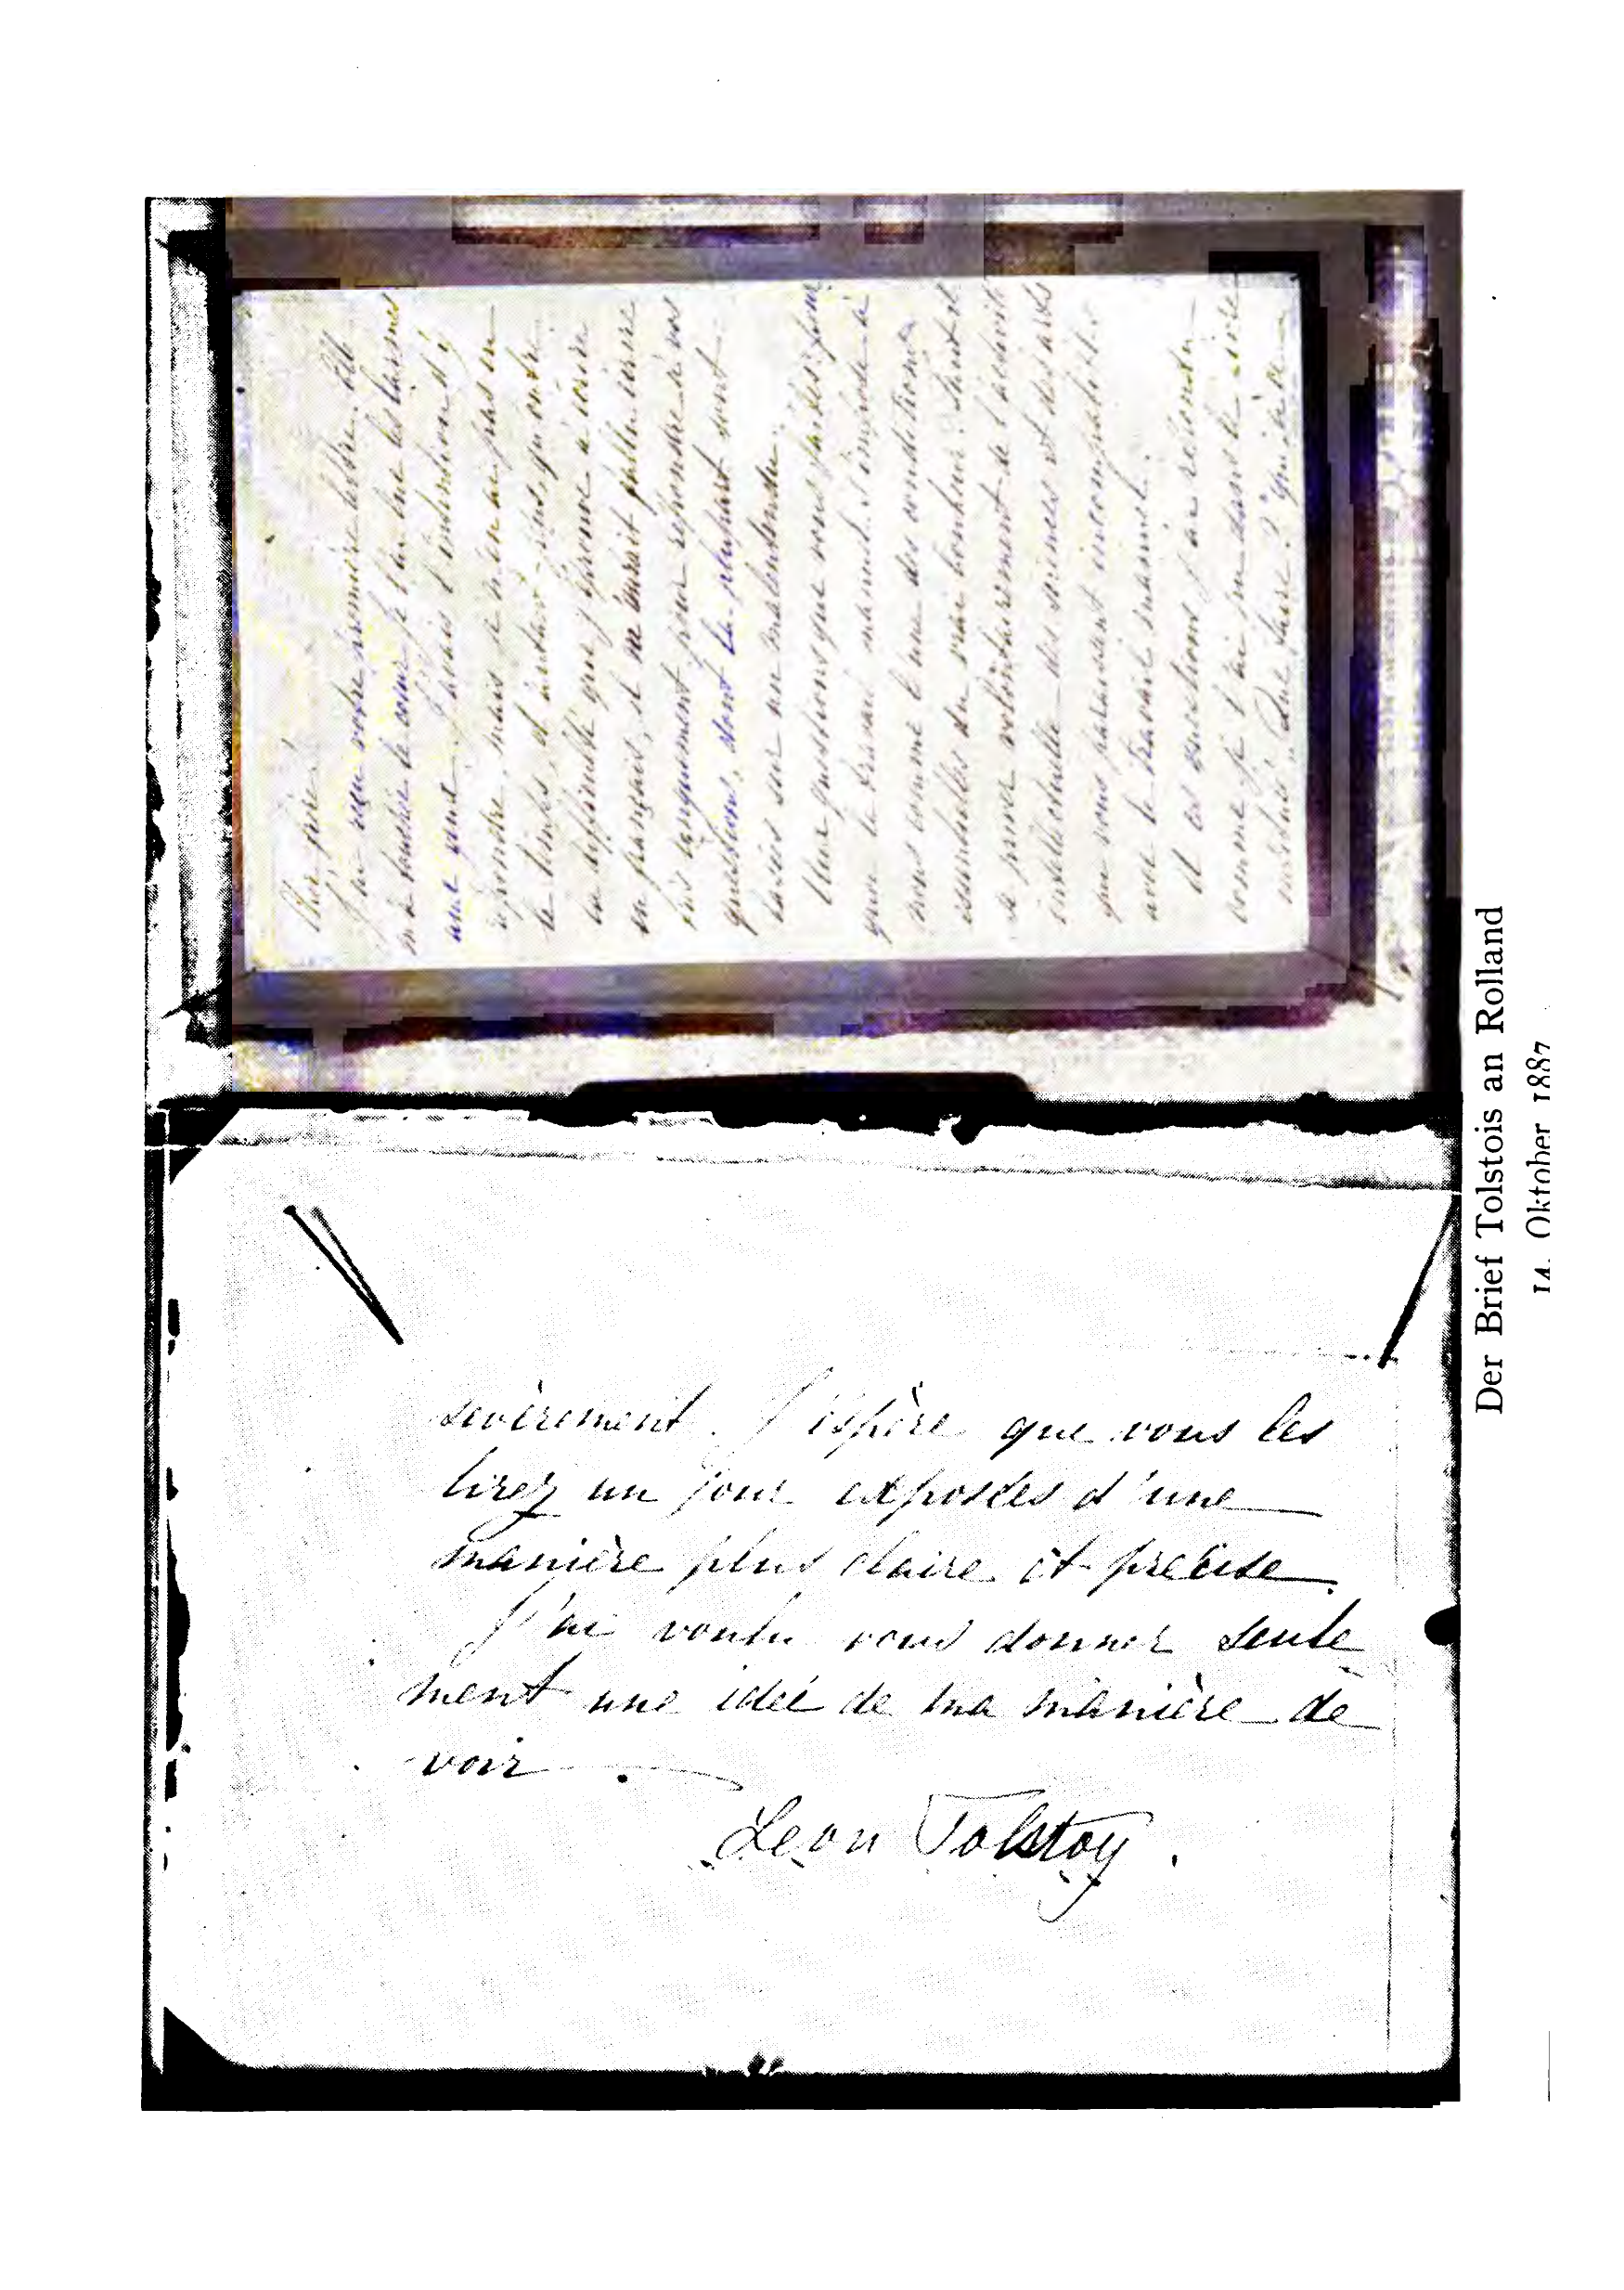 Cher frère!
J'ai reçu votre première lettre. Elle
m'a touché le coeur. Je l'ai lue les larmes
aux yeux. J'avais l'intention d'y
répondre, mais je n'en ai pas eu
le temps, et d'autant plus, qu'outre
la difficulté que j'éprouve à écrire
en français, il m'aurait fallu écrire
très longuement pour répondre à vos
questions, dont la plupart sont
basées sur un malentendu.
Aux questions que vous faites: pour
quoi le travail manuel s'impose à
nous comme l'une des conditions
essentielles du vrai bonheur? Faut il
se priver volontairement de l'activité
intellectuelle des sciences et des arts
qui vous paraissent incompatibles
avec le travail manuel.
A ces questions j'ai répondu
comme je l'ai pu dans le livre
intitulé: Que faire? qui à ce
sevèrement. J'espère que vous les
lirez un jour exposées d'une
manière plus claire et précise.
J'ai voulu vous donner seule
ment une idée de ma manière de
voir.
Léon Tolstoy.
Der Brief Tolstois an Rolland
14. Oktober 1887